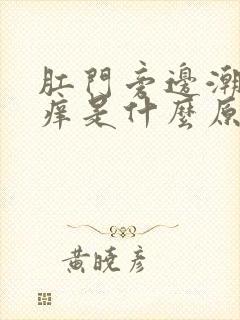 肛門旁邊潮
痒是什麼原
黃曉彥